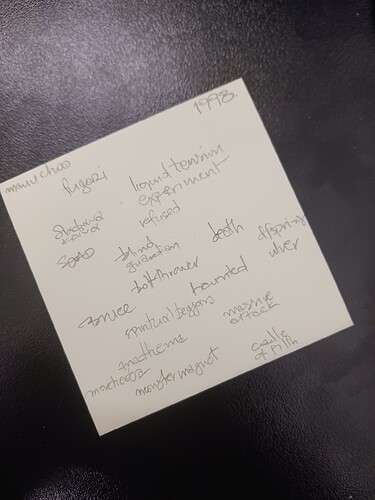 1998.
manu chao
fugazi
liquid tension
experiment
refused
SOAD
blind
guardian
death
offspring
bolt thrower
haunted
ulver
spiritual beggars
massive
attack
anathema
morcheeba
monster magnet
cradle
of filth